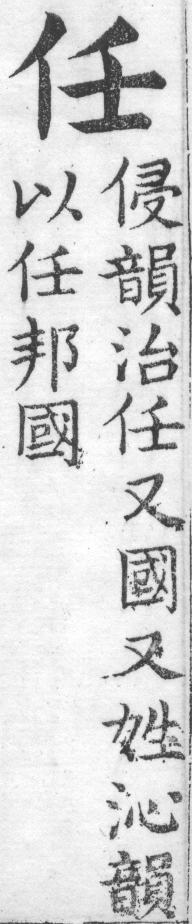 任
侵韻治任又國又姓沁韻
以任邦國